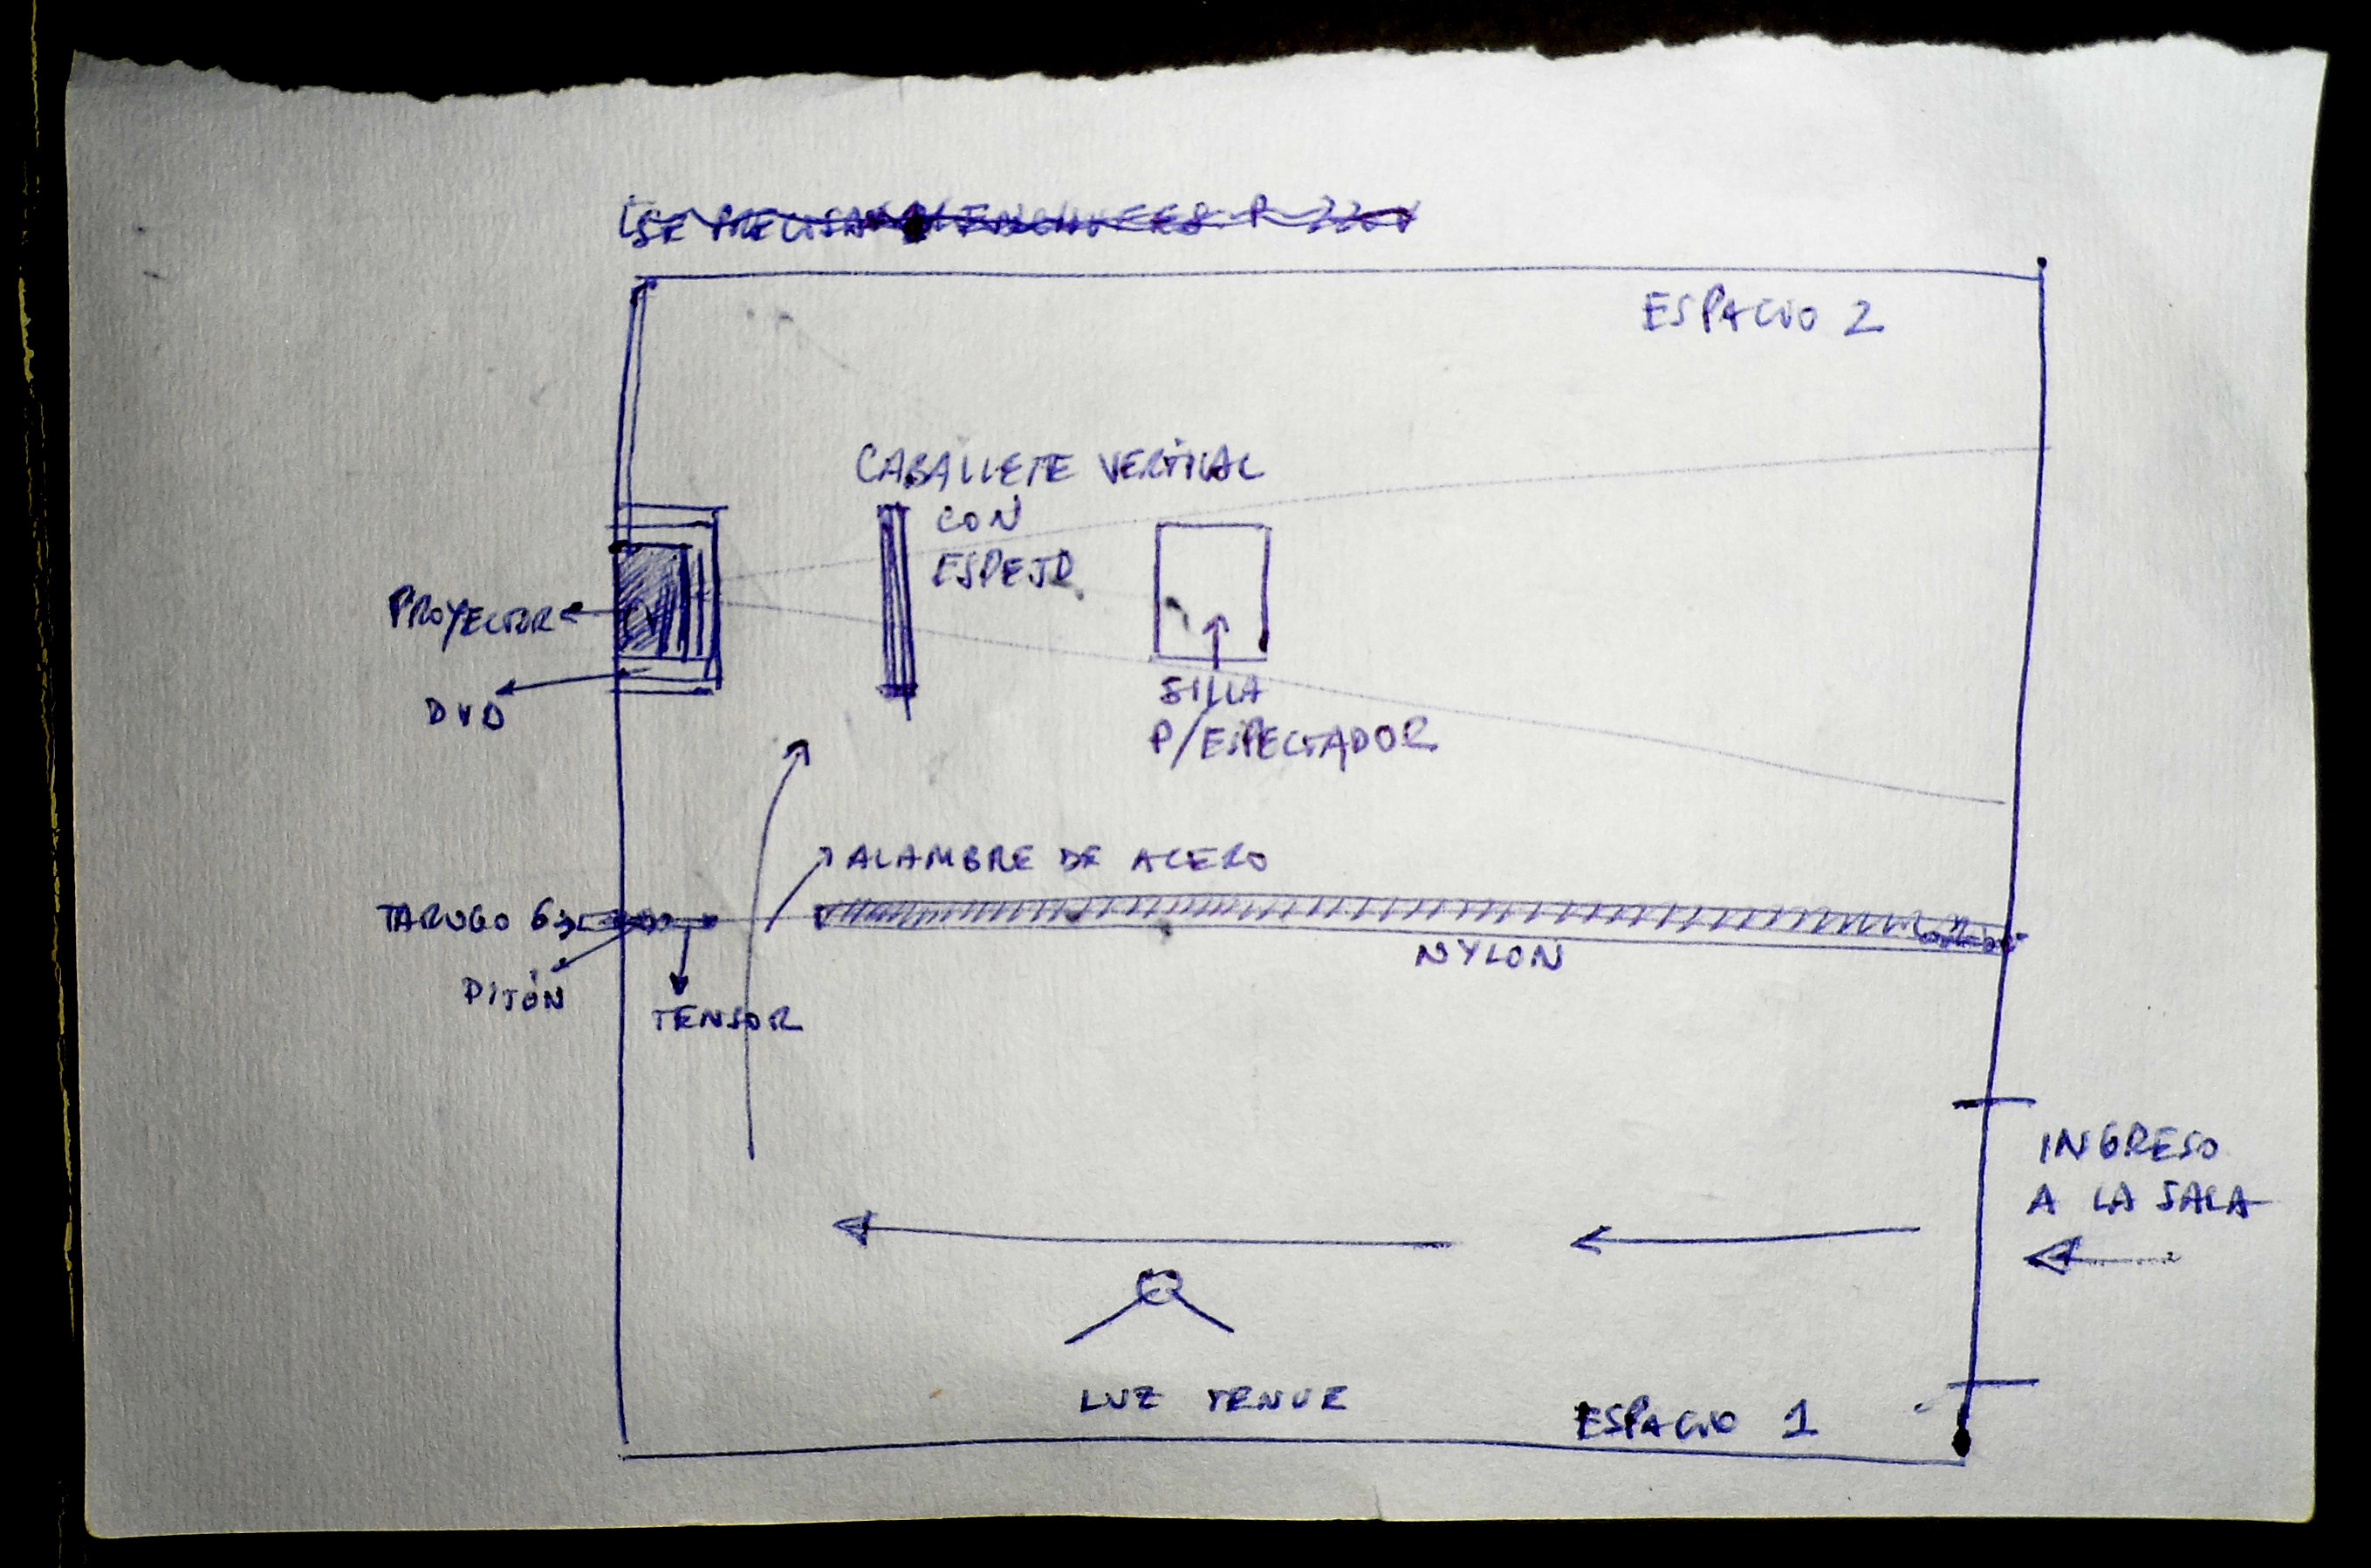 SE PRECISAN ENCHUFES P 220V
ESPACIO 2
CABALLETE VERTICAL
CON
ESPEJO
PROYECTOR
DVD
SILLA
P/ESPECTADOR
ALAMBRE DE ACERO
TARUGO 6
NYLON
PITÓN
TENSOR
INGRESO
A LA SALA
LUZ TENUE
ESPACIO 1